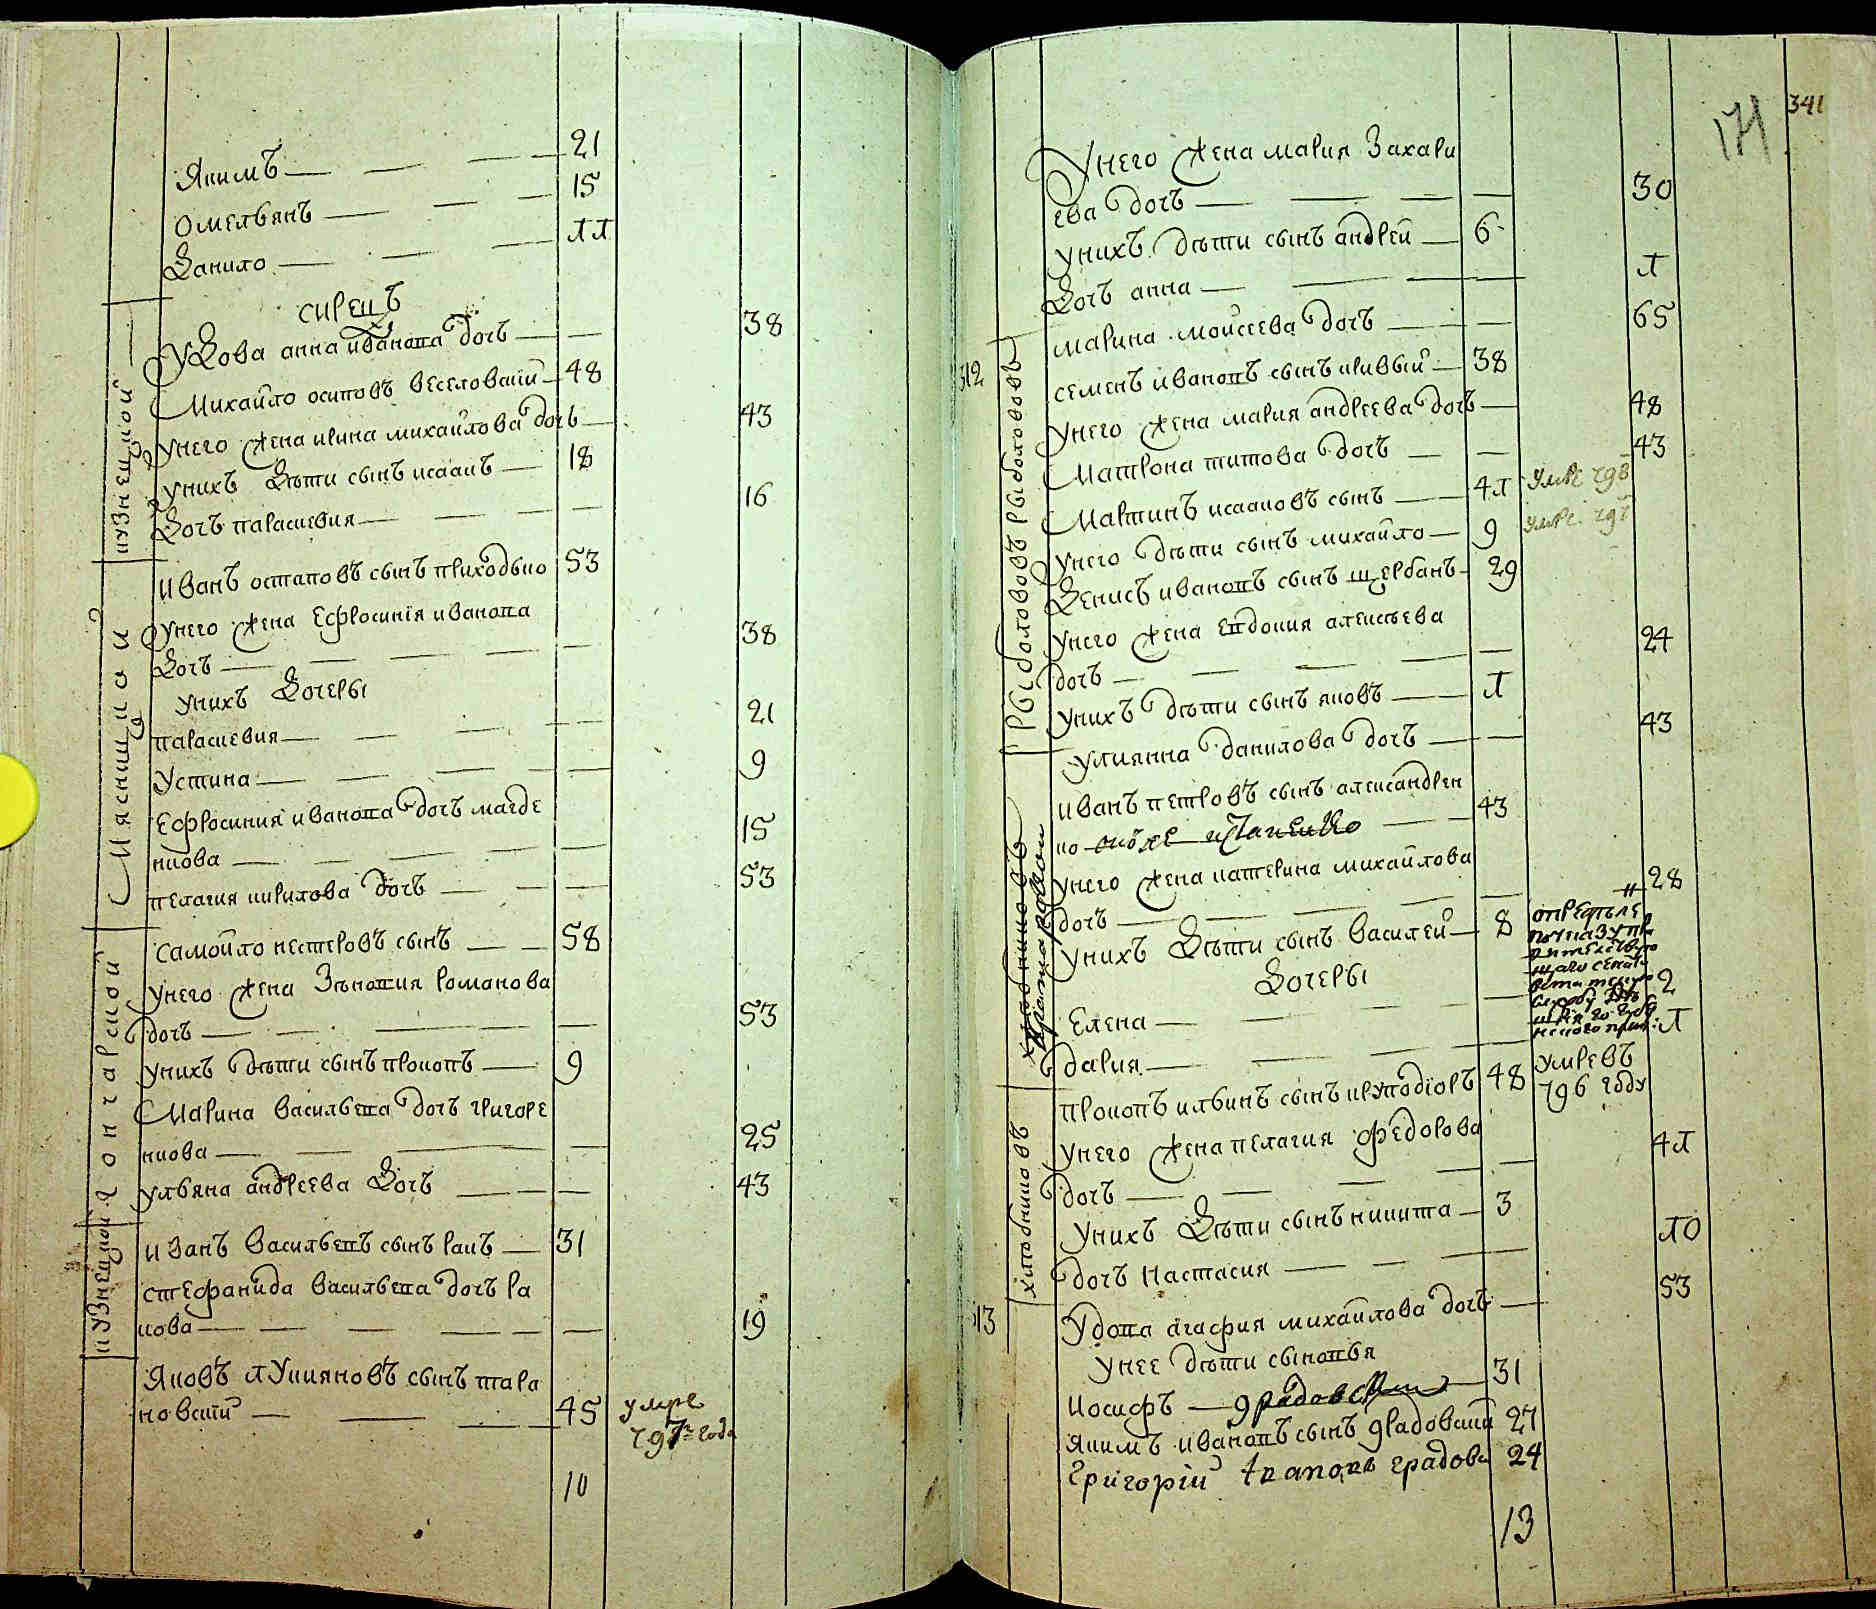 Якимъ 21
Омельянъ 15
Данило 11
сирецъ
Удова анна иванова дочъ 38
Михайло осиповъ веселовский 48
унего жена ирина михайлова дочь 43
унихъ дѣти сынъ исаакъ 18
Дочъ параскевия 16
иванъ остаповъ сынъ приходько 53
унего жена Ефросинія иванова
дочъ 38
унихъ дочеры
параскевия 21
Устина 9
Ефросиния иванова дочъ магде
нкова 15
пелагия кирилова дочъ 53
самойло нестеровъ сынъ 58
унего жена Зѣновия романова
дочъ 53
унихъ дѣти сынъ прокопъ 9
Марина васильева дочъ григоре
нкова 25
ульяна андреева дочъ 43
иванъ васильевъ сынъ ракъ 31
стефанида васильева дочъ ра
кова 19
Яковъ лукияновъ сынъ тара
новский 45 умре
797го года
10
кузнецкой
Мясницкой
гончарской
кузнецкой
341
171
Унего жена мария Захари
ева дочъ 30
унихъ дѣти сынъ андрей 6
Дочъ анна 1
марина моисеева дочъ 65
312 семенъ ивановъ сынъ кривый 38
унего жена мария андреева дочъ 48
Матрона титова дочъ 43
Мартинъ исааковъ сынъ 41 умре 798
унего дѣти сынъ михайло 9 умре 797
Денисъ ивановъ сынъ щербанъ 29
унего жена евдокия алексѣева
дочъ 24
унихъ дѣти сынъ яковъ 1
улиянна данилова дочъ 43
иванъ петровъ сынъ александрен
ко 43
унего жена катерина михайлова
дочъ 28
унихъ дѣти сынъ василей 8
дочеры
Елена 2
дария 1
прокопъ ильинъ сынъ круподіоръ 48 умре въ
796 году
унего жена пелагия федорова
дочъ 41
унихъ дѣти сынъ никита 3
дочъ Настасия 10
313 Удова агафия михайлова дочъ 53
унее дѣти сыновья
иосифъ 31
якимъ ивановъ сынъ градовский 27
Григорій градовс 24
13
рыболововъ рыболововъ
хлѣбниковъ